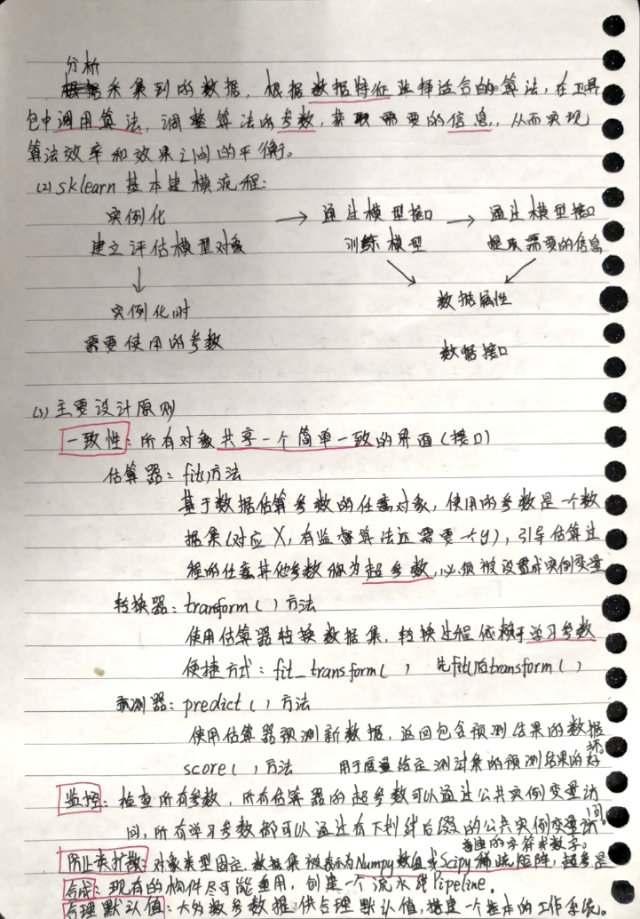 分析
采集到的数据,根据数据特征选择适合的算法,在工具
包中调用算法,调整算法的参数,获取需要的信息,从而实现
算法效率和效果之间的平衡。
(2) sklearn基本建模流程:
实例化 → 通过模型接口 → 通过模型接口
建立评估模型对象 训练模型 提取需要的信息
↓ ↘ ↙
实例化时 数据属性
需要使用的参数 数据接口
(3) 主要设计原则
一致性:所有对象共享一个简单一致的界面(接口)
估算器:fit()方法
基于数据估算参数的任意对象,使用的参数是一个数
据集(对应X,有监督算法还需要一个y),引导估算过
程的任意其他参数称为超参数,必须被设置成实例变量
转换器:transform()方法
使用估算器转换数据集,转换过程依赖于学习参数
便捷方式:fit_transform() 先fit()后transform()
预测器:predict()方法
使用估算器预测新数据,返回包含预测结果的数据
score()方法 用于度量给定测试集的预测结果的好坏
监控:检查所有参数,所有估算器的超参数可以通过公共实例变量访
问,所有学习参数都可以通过有下划线后缀的公共实例变量访问
普通的字符或数字。
防止类扩散:对象类型固定,数据集被表示为Numpy数组或Scipy稀疏矩阵,超参是
合成:现有的构件尽可能重用,创建一个流水线Pipeline。
合理默认值:大多数参数提供合理默认值,搭建一个基本的工作系统。